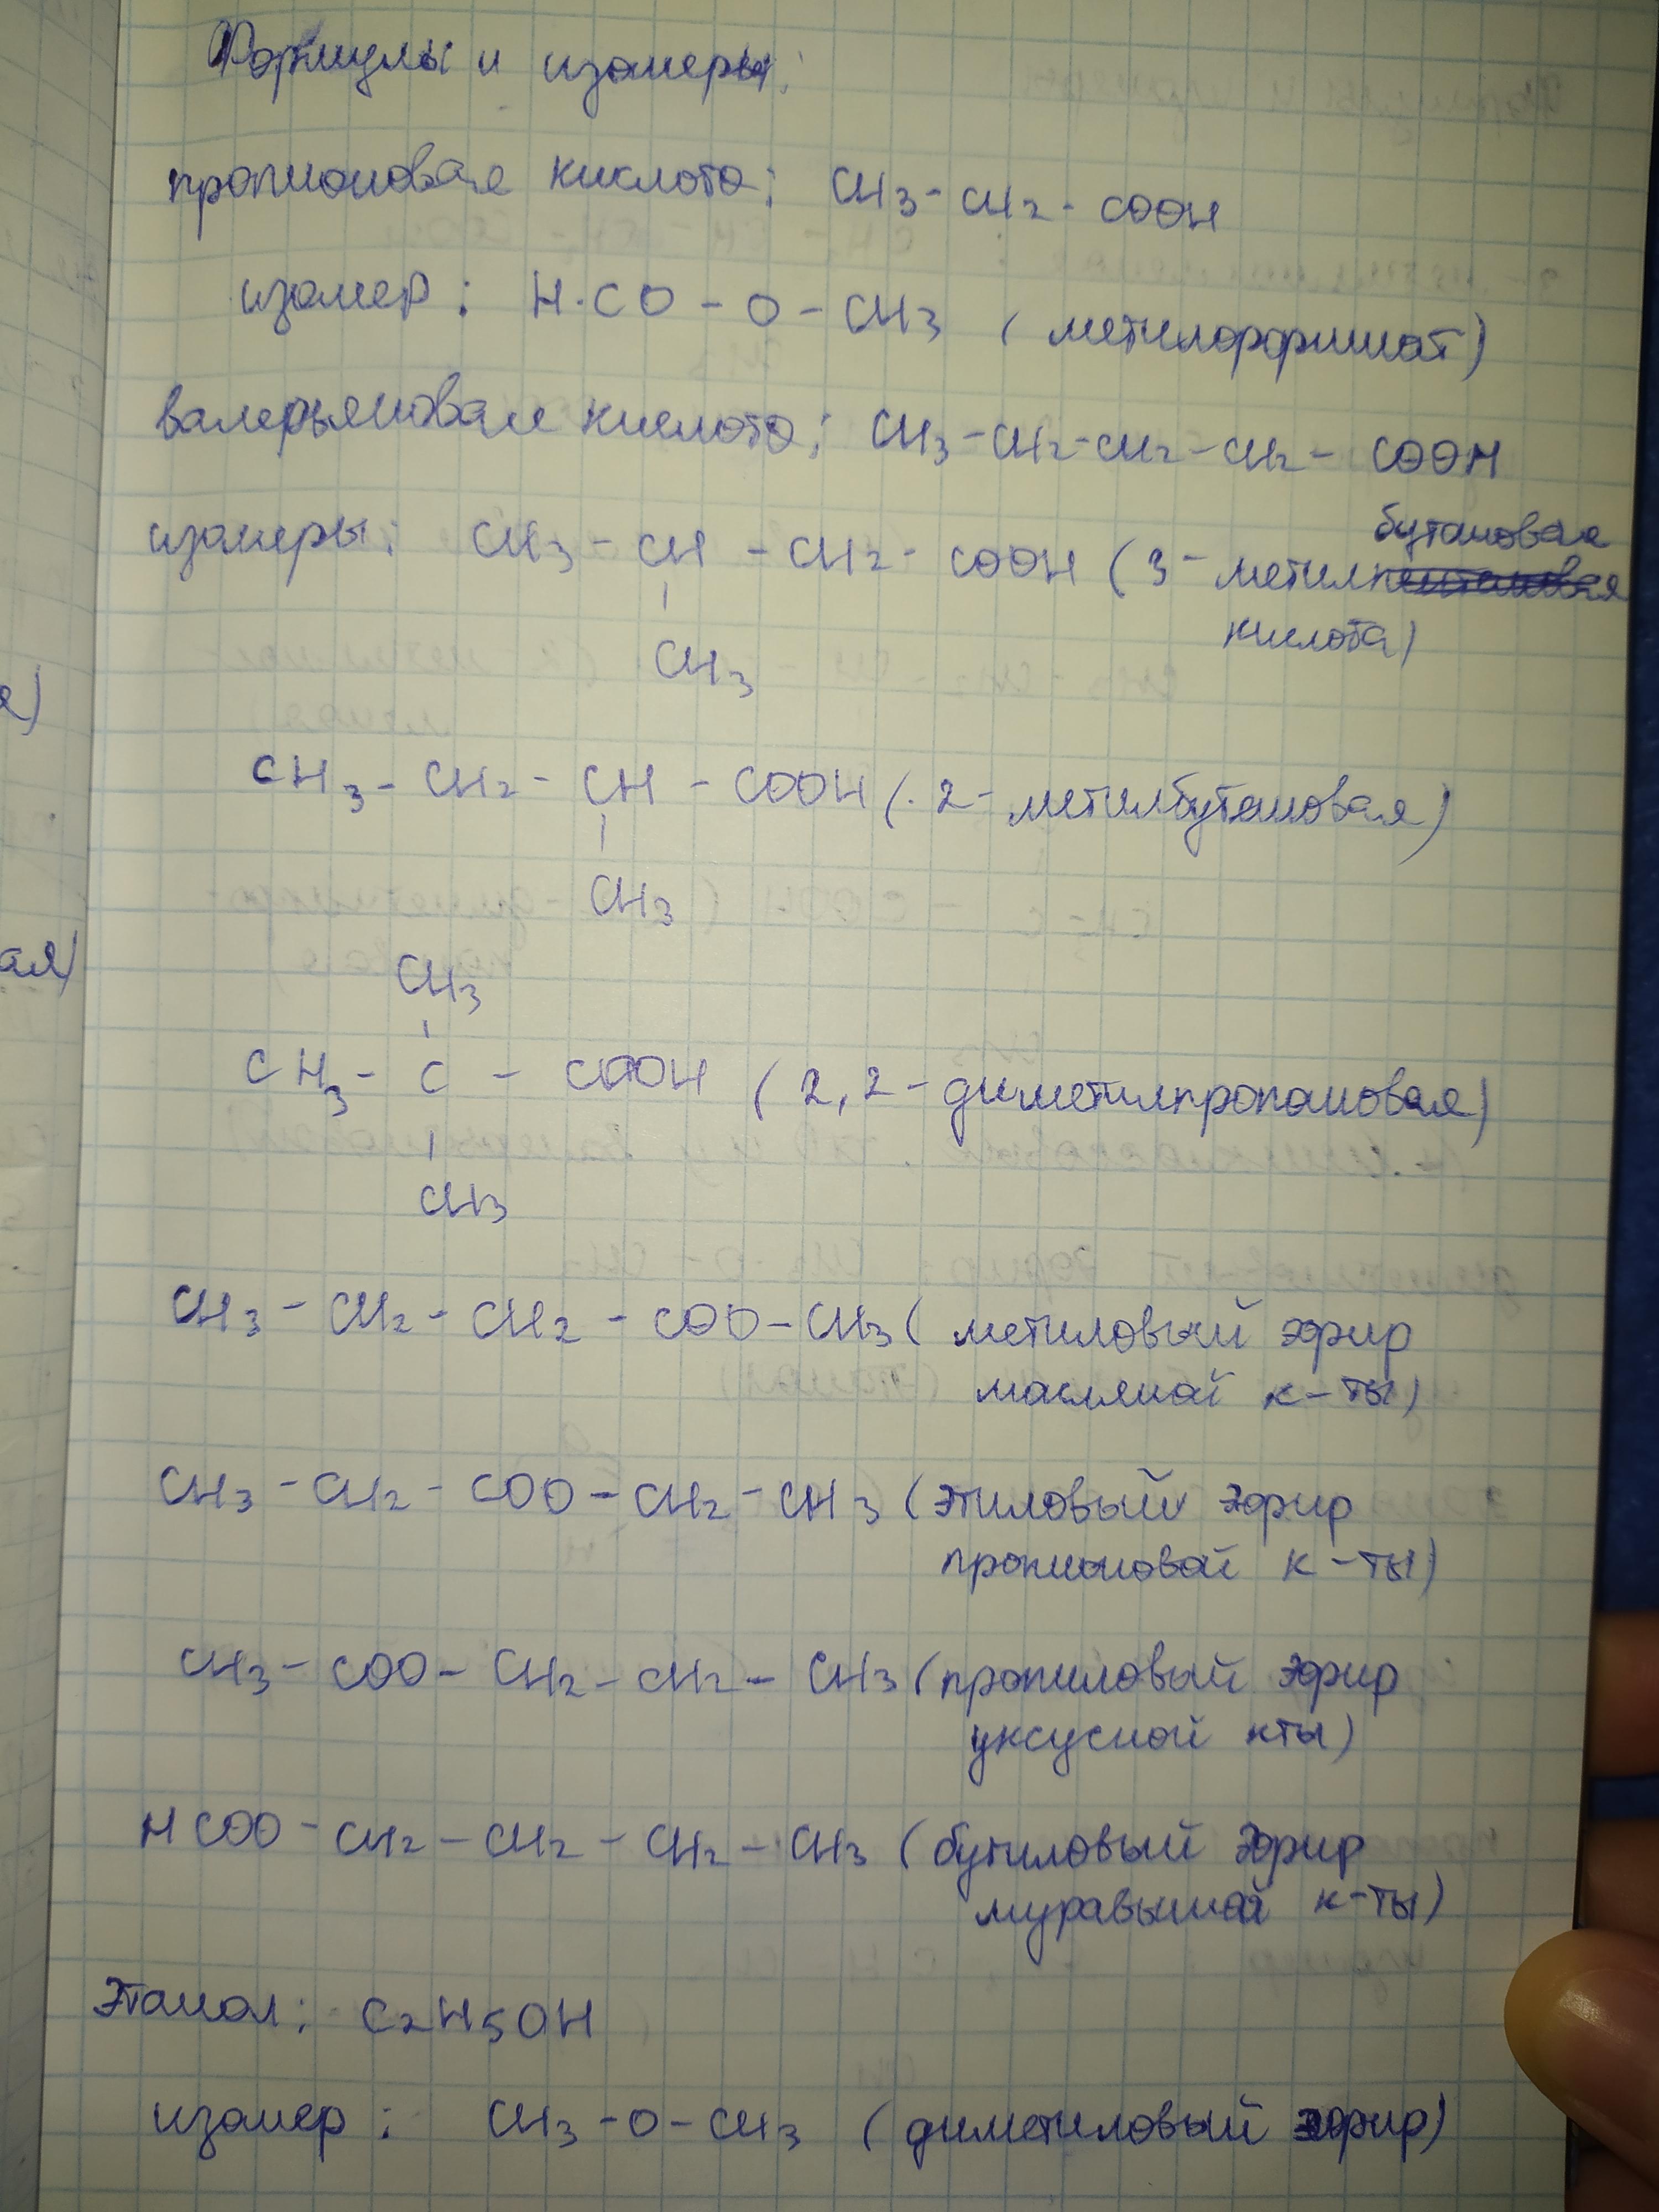 Формулы и изомеры:
пропионовая кислота: CH3 - CH2 - COOH
изомер: H·CO - O - CH3 (метилорформиат)
валерьяновая кислота: CH3 - CH2 - CH2 - CH2 - COOH
бутановая
изомеры: CH3 - CH - CH2 - COOH (3 - метилпентановая
кислота)
CH3
CH3 - CH2 - CH - COOH (. 2 - метилбутановая)
CH3
CH3
CH3 - C - COOH (2, 2 - диметилпропановая)
CH3
CH3 - CH2 - CH2 - COO - CH3 (метиловый эфир
масляной к-ты)
CH3 - CH2 - COO - CH2 - CH3 (этиловый эфир
пропионовой к-ты)
CH3 - COO - CH2 - CH2 - CH3 (пропиловый эфир
уксусной кты)
HCOO - CH2 - CH2 - CH2 - CH3 (бутиловый эфир
муравьиной к-ты)
Этанол: C2H5OH
изомер: CH3 - O - CH3 (диметиловый эфир)